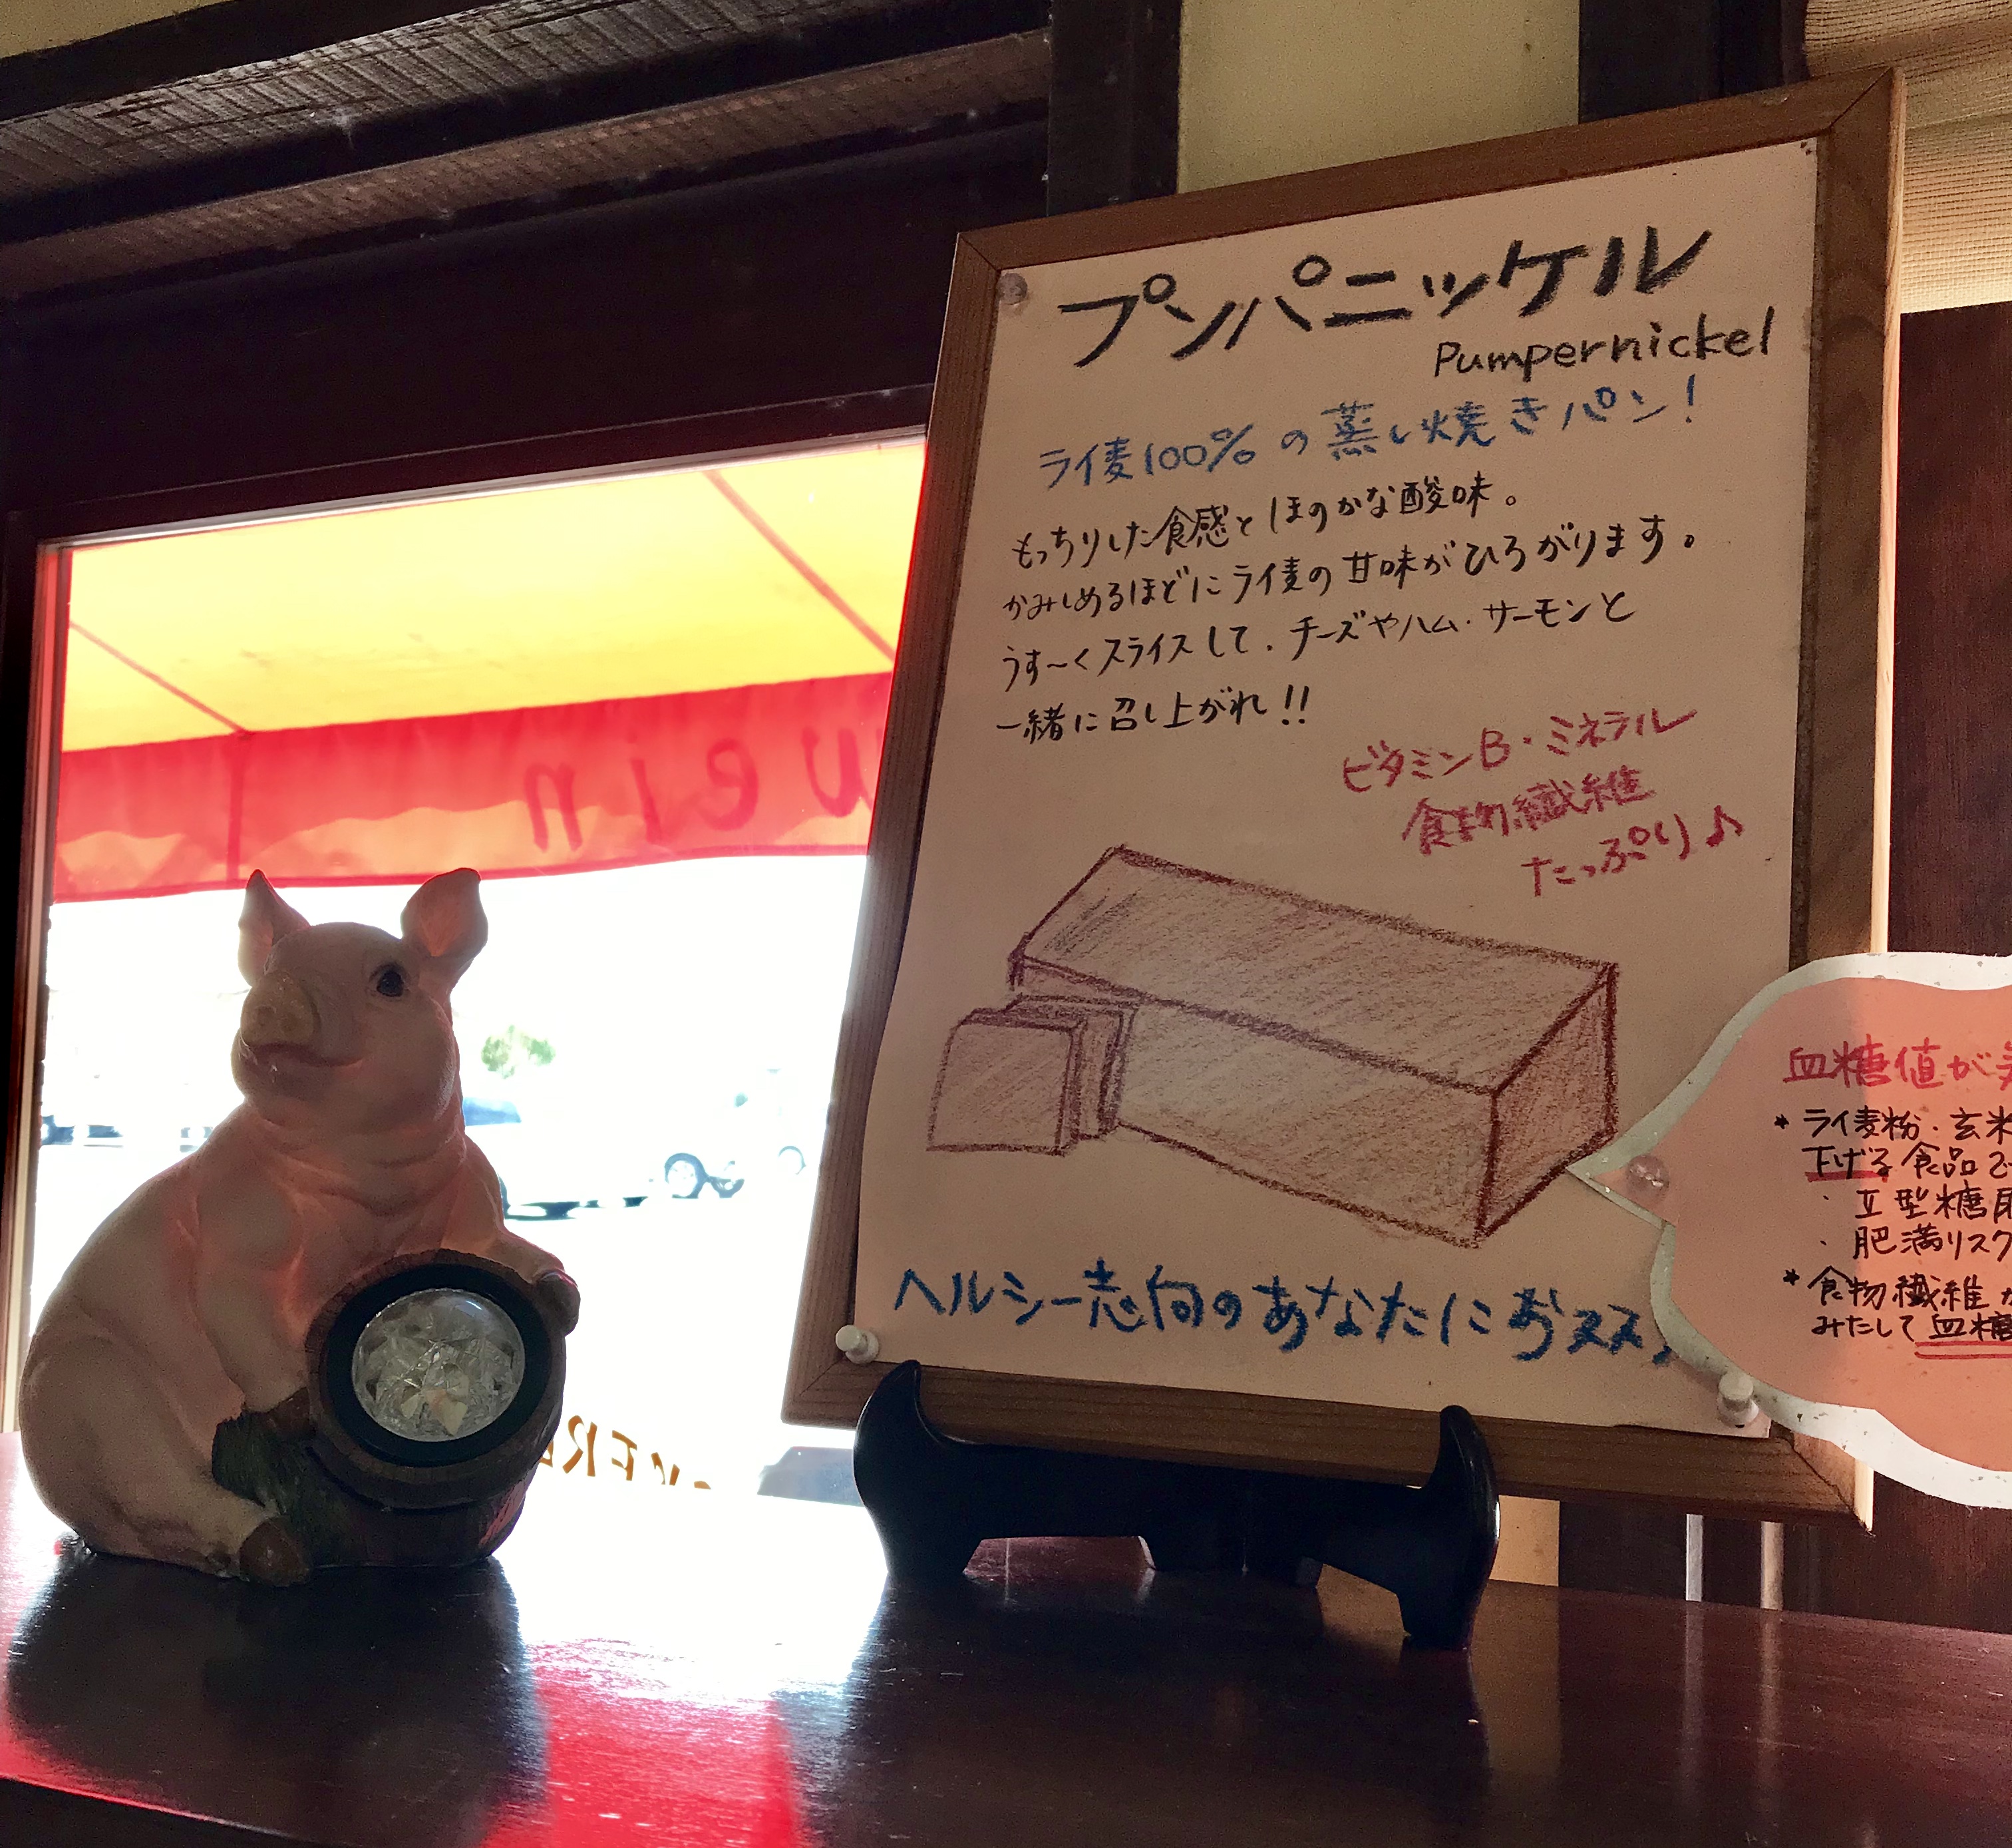 プンパニッケル
Pumpernickel
ライ麦100%の蒸し焼きパン!
もっちりした食感とほのかな酸味。
かみしめるほどにライ麦の甘味がひろがります。
うす〜くスライスして、チーズやハム・サーモンと
一緒に召し上がれ!!
ビタミンB・ミネラル
食物繊維
たっぷり♪
ヘルシー志向のあなたにおススメ
血糖値が
*ライ麦粉・玄米
下げる食品で
・II型糖尿
・肥満リスク
*食物繊維が
みたして血糖
wein